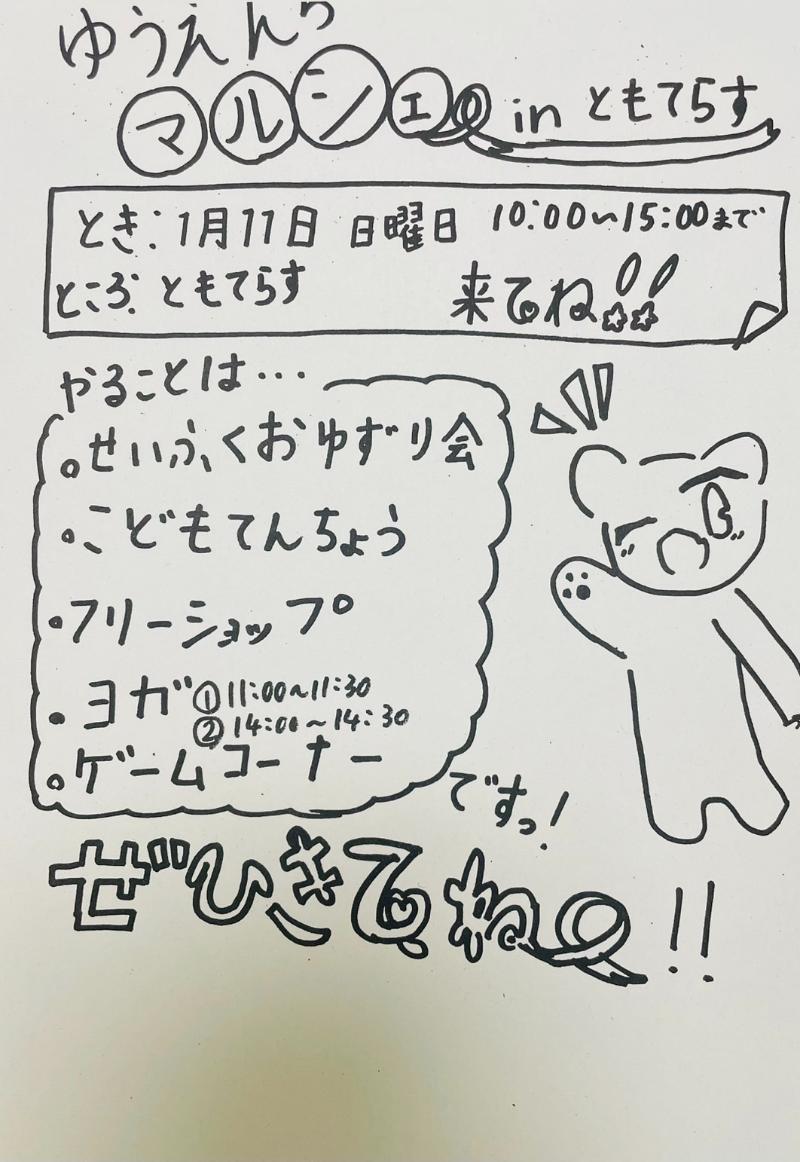 ゆうえんち
マルシェ in ともてらす
とき:1月11日 日曜日 10:00〜15:00まで
ところ:ともてらす 来てね!!
やることは…
・せいふくおゆずり会
・こどもてんちょう
・フリーショップ
・ヨガ ①11:00〜11:30
②14:00〜14:30
・ゲームコーナー
ですっ!
ぜひきてね!!